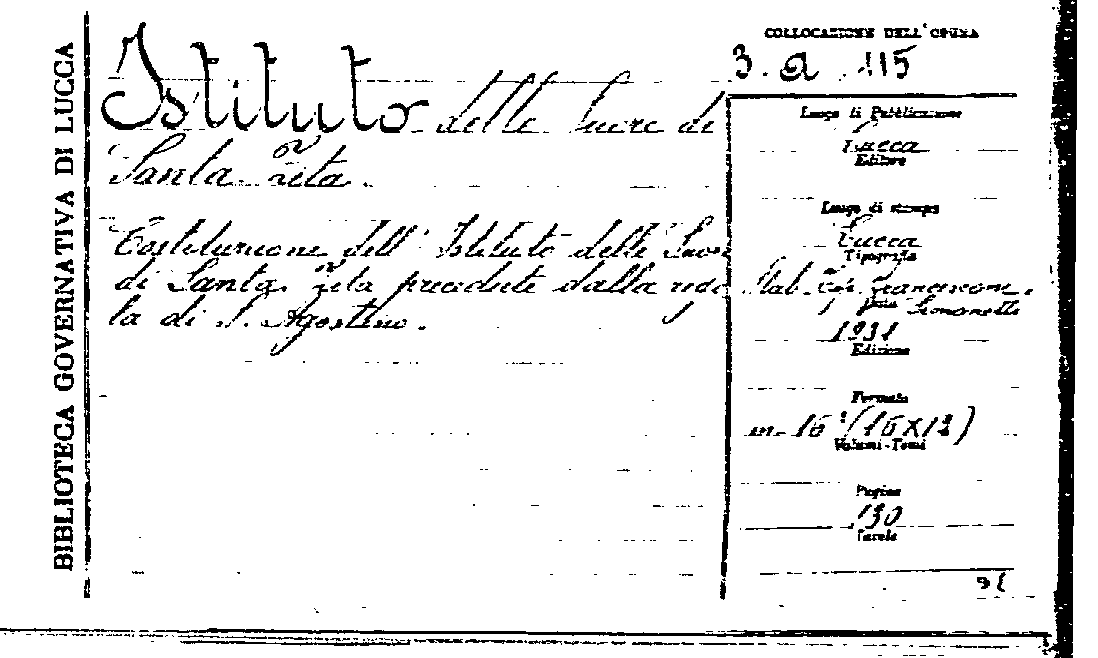 BIBLIOTECA GOVERNATIVA DI LUCCA
Istituto delle Suore di
Santa Zita.
Costituzione dell' Istituto delle Suore
di Santa Zita precedute dalla rego
la di S. Agostino.
COLLOCAZIONE DELL'OPERA
3. a. 115
Luogo di Pubblicazione
Lucca
Editore
Luogo di stampa
Lucca
Tipografia
Stab. Tip.
Data Simonetti
1931
Edizione
Formato
in-16° (16X12)
Volumi-Tomi
Pagine
130
Tavole